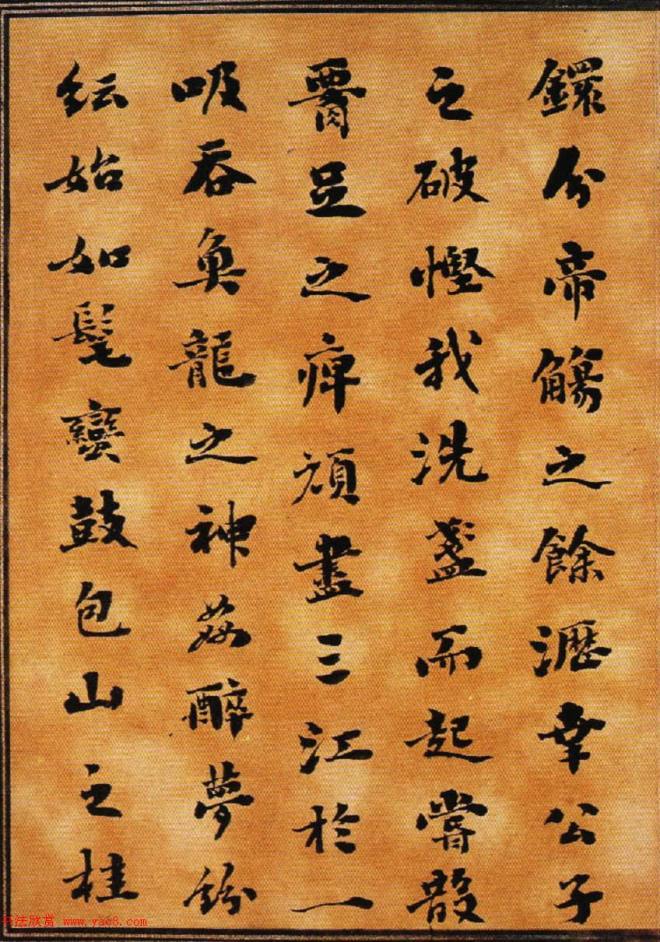 鐶分帝觴之餘瀝幸公子
之破慳我洗盞而起嘗散
腰足之痺頑盡三江於一
吸吞魚龍之神姦醉夢紛
紜始如髦蠻鼓包山之桂
法欣赏 www.yac8.com